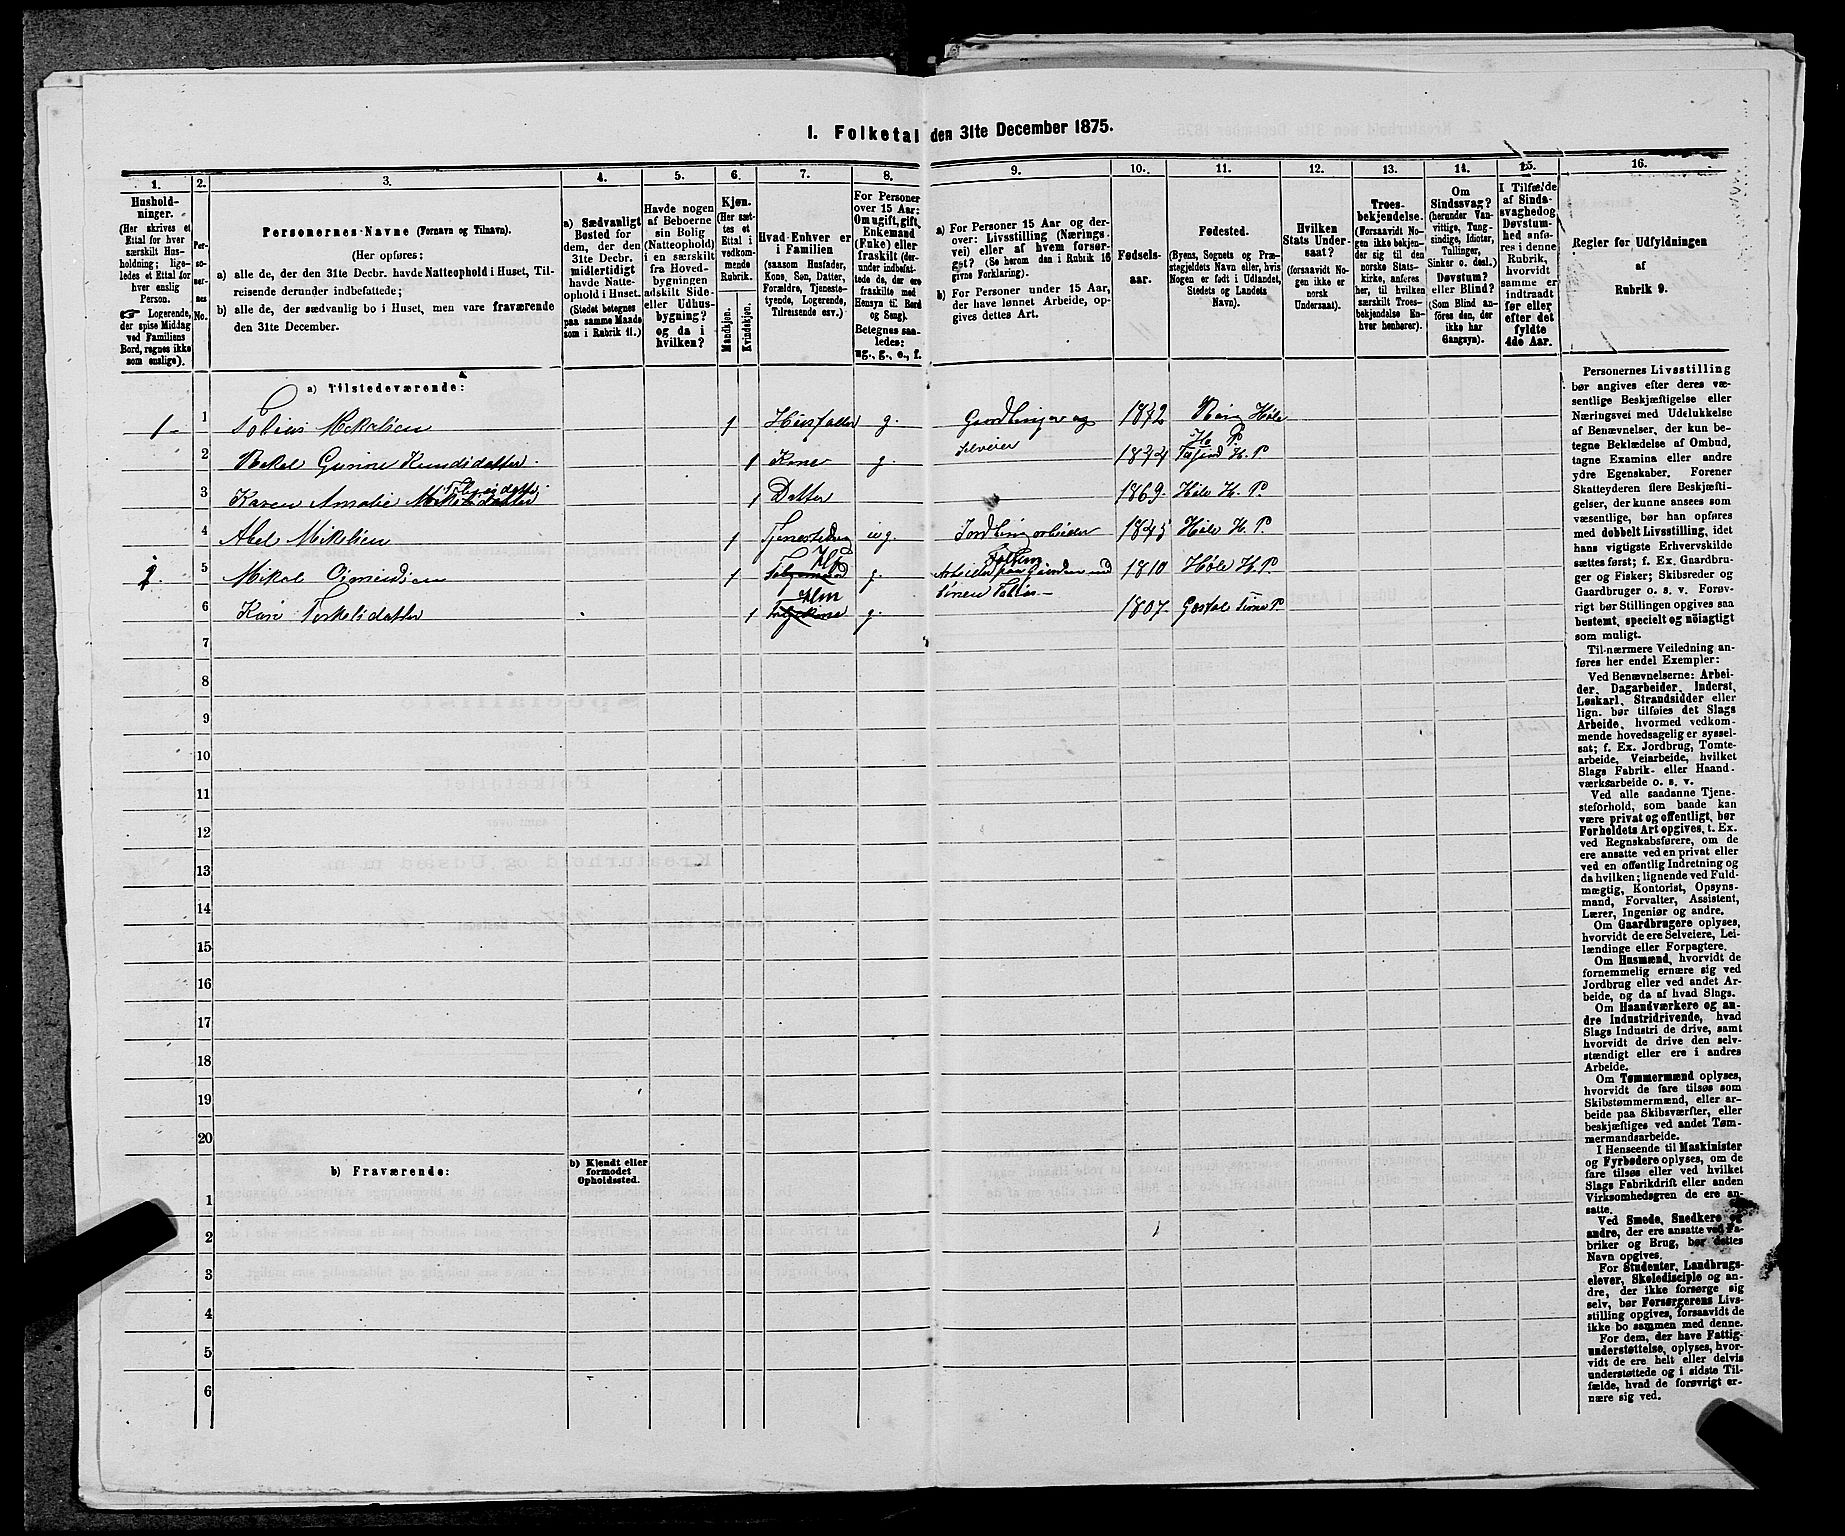 1. Folketal den 31te December 1875.
1.
2.
3.
4.
5.
6.
7.
8.
9.
10.
11.
12.
13.
14.
15.
16.
Hushold-
ninger.
(Her skrives et
Ettal for hver
særskilt Hus-
holdning; lige-
ledes et Ettal for
hver enslig
Person.
☞ Logerende,
der spise Middag
ved Familiens
Bord, regnes ikke
som enslige).
Per-
so-
ner-
nes
No.
Personernes Navne (Fornavn og Tilnavn).
(Her opføres:
a) alle de, der den 31te Decbr. havde Natteophold i Huset, Til-
reisende derunder indbefattede;
b) alle de, der sædvanlig bo i Huset, men vare fraværende
den 31te December.
a) Sædvanligt
Bosted for
dem, der den
31te Decbr.
midlertidigt
havde Natte-
ophold i Huset.
(Stedet betegnes
paa samme Maade
som i Rubrik 11.)
Havde nogen
af Beboerne
sin Bolig
(Natteophold)
i en særskilt
fra Hoved-
bygningen
adskilt Side-
eller Udhus-
bygning?
og da i
hvilken?
Kjøn.
(Her sæt-
tes et
Ettal i
vedkom-
mende
Rubrik.
Mandkjøn.
Kvindekjøn.
Hvad Enhver er
i Familien
(saasom Husfader,
Kone, Søn, Datter,
Forældre, Tjeneste-
tyende, Logerende,
Tilreisende osv.)
For Personer
over 15 Aar:
Om ugift, gift,
Enkemand
(Enke) eller
fraskilt (der-
under indbefat-
tede de, der ere
fraskilte med
Hensyn til Bord
og Seng).
Betegnes saa-
ledes:
ug., g., e., f.
a) For Personer 15 Aar og der-
over: Livsstilling (Nærings-
vei) eller af hvem forsør-
get? (Se herom den i Rubrik 16
givne Forklaring).
b) For Personer under 15 Aar,
der have lønnet Arbeide, op-
gives dettes Art.
Fødsels-
aar.
Fødested.
(Byens, Sognets og Præ-
stegjeldets Navn eller, hvis
Nogen er født i Udlandet,
Stedets og Landets
Navn).
Hvilken
Stats Under-
saat?
(forsaavidt No-
gen ikke er
norsk
Undersaat).
Troes-
bekjendelse.
(Forsaavidt No-
gen ikke bekjen-
der sig til den
norske Stats-
kirke, anføres
her, til hvilken
særskilt Troes-
bekjendelse En-
hver henhører).
Om
Sindssvag?
(herunder Van-
vittige, Tung-
sindige, Idioter,
Tullinger,
Sinker o. desl.)
Døvstum?
eller Blind?
(Som Blind an-
føres den, der
ikke har
Gangsyn).
I Tilfælde
af Sinds-
svaghed og
Døvstum-
hed anfø-
res i denne
Rubrik,
hvorvidt
samme er
indtraadt
før eller
efter det
fyldte
4de Aar.
Regler for Udfyldningen
af
Rubrik 9.
a) Tilstedeværende:
1 1 Tobias Mekalsen 1 Husfader g. Gaardbruger og Selveier 1842 Høle
2 Rakel Gurine Knudsdatter 1 Kone g. H. P.
3 Karen Amalie Tobiasdatter 1 Datter 1869. Høle H. P.
4 Abel Mikelsen 1 ug. Jordbrugarbeider 1845 Høle H. P.
2. 5 Mikal 1 g. Arbeider paa Gaarden 1810 Høle H. P
6 Kari Torkelsdatter 1 g. 1807.
7
8
9
10
11
12
13
14
15
16
17
18
19
20
b) Fraværende:
b) Kjendt eller
formodet
Opholdssted.
1
2
3
4
5
6
Personernes Livsstilling
bør angives efter deres væ-
sentlige Beskjæftigelse eller
Næringsvei med Udelukkelse
af Benævnelser, der kun be-
tegne Beklædelse af Ombud,
tagne Examina eller andre
ydre Egenskaber. Forener
Skatteyderen flere Beskjæfti-
gelser, der kunne ansees som
væsentlige, bør han opføres
med dobbelt Livsstilling, idet
hans vigtigste Erhvervskilde
sættes først; f. Ex. Gaardbru-
ger og Fisker; Skibsreder og
Gaardbruger o. s. v. Forøv-
rigt bør Stillingen opgives saa
bestemt, specielt og nöiagtigt
som muligt.
Til nærmere Veiledning an-
føres her endel Exempler:
Ved Benævnelserne: Arbei-
der, Dagarbeider, Inderst,
Løskarl, Strandsidder eller
lign. bør tilføies det Slags
Arbeide, hvormed vedkom-
mende hovedsagelig er syssel-
sat; f. Ex. Jordbrug, Tomte-
arbeide, Veiarbeide, hvilket
Slags Fabrik- eller Haand-
værksarbeide o. s. v.
Ved alle saadanne Tjene-
steforhold, som baade kan
være privat og offentligt, bør
Forholdets Art opgives, t. Ex.
ved Regnskabsførere, om de
ere ansatte ved en privat eller
ved en offentlig Indretning og
da hvilken; lignende ved Fuld-
mægtig, Kontorist, Opsyns-
mand, Forvalter, Assistent,
Lærer, Ingeniør og andre.
Om Gaardbrugere oplyses,
hvorvidt de ere Selveiere, Lei-
lændinge eller Forpagtere.
Om Husmænd, hvorvidt de
fornemmelig ernære sig ved
Jordbrug eller ved andet Ar-
beide, og da af hvad Slags.
Om Haandværkere og an-
dre Industridrivende, hvad
Slags Industri de drive, samt
hvorvidt de drive den selv-
stændigt eller ere i andres
Arbeide.
Om Tømmermænd oplyses,
hvorvidt de fare tilsøs som
Skibstømmermænd, eller ar-
beide paa Skibsværfter, eller
beskjæftiges ved andet Tøm-
mermandsarbeide.
I Henseende til Maskinister
og Fyrbødere oplyses, om de
fare tilsøs eller ved hvilket
Slags Fabrikdrift eller anden
Virksomhedsgren de ere an-
satte.
Ved Smede, Snedkere og
andre, der ere ansatte ved Fa-
briker og Brug, bør dettes
Navn opgives.
For Studenter, Landbrugs-
elever, Skoledisciple og an-
dre, der ikke forsørge sig
selv, bør Forsørgerens Livs-
stilling opgives, forsaavidt de
ikke bo sammen med denne.
For dem, der have Fattig-
understøttelse, oplyses, hvor-
vidt de ere helt eller delvis
understøttede og i sidste Til-
fælde, hvad de forøvrigt er-
nære sig ved.